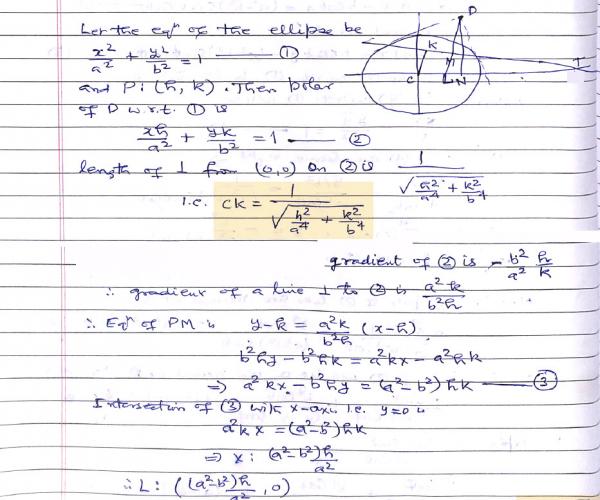 Let the eqn of the ellipse be
x²/a² + y²/b² = 1 —— ①
and P: (h, k). Then polar
of P w.r.t. ① is
xh/a² + yk/b² = 1 —— ②
length of ⊥ from (0,0) on ② is 1/√(h²/a⁴ + k²/b⁴)
i.e. CK = 1/√(h²/a⁴ + k²/b⁴)
gradient of ② is - b²/a² h/k
∴ gradient of a line ⊥ to ② is a²k/b²h
∴ Eqn of PM is y-k = a²k/b²h (x-h)
b²hy - b²hk = a²kx - a²hk
⇒ a²kx - b²hy = (a²-b²)hk —— ③
Intersection of ③ with x-axis i.e. y=0 is
a²kx = (a²-b²)hk
⇒ x: (a²-b²)h/a²
∴ L: ((a²-b²)h/a², 0)
P
K
M
T
C
L N